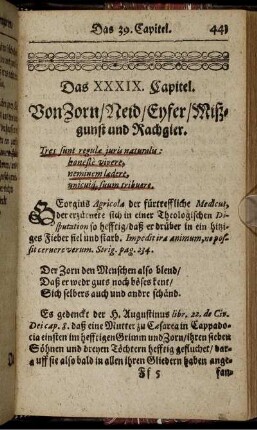 Das 39. Capitel. 441
Das XXXIX. Capitel.
Von Zorn/Neid/Eyfer/Miß-
gunst und Rachgier.
Tres sunt regulæ juris naturalis:
honestè vivere,
neminem lædere,
unicuiq; suum tribuere.
GEorgius Agricola der fürtreffliche Medicus,
der erzürnete sich in einer Theologischen Di-
sputation so hefftig/daß er drüber in ein hitzi-
ges Fieber fiel und starb. Impedit ira animum, ne pos-
sit cernere verum. Strig. pag. 234.
Der Zorn den Menschen also blend/
Daß er wedr guts noch böses kent/
Sich selbers auch und andre schänd.
Es gedenckt der H. Augustinus libr. 22. de Civ.
Dei cap. 8. daß eine Mutter zu Cæsarea in Cappado-
cia einsten im hefftigen Grimm und Zorn/ihren sieben
Söhnen und dreyen Töchtern hefftig gefluchet/dar-
auff sie also bald in allen ihren Gliedern haben ange-
Ff 5 fan-